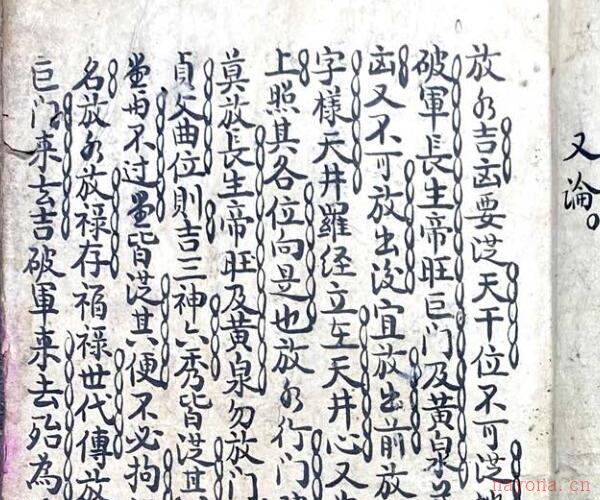 又論。
放水吉凶要从天干位不可从
破軍長生帝旺巨门及黄泉
凶又不可放出没宜放出前放
字樣天井羅经立在天井心又
上照其各位向是也放水行门
莫放長生帝旺及黄泉勿放门
貞文曲位則吉三神六秀皆从其
不过皆从其便不必拘
名放水放禄存福禄世代傳放
巨门来去吉破軍来去殆為
narona.cn